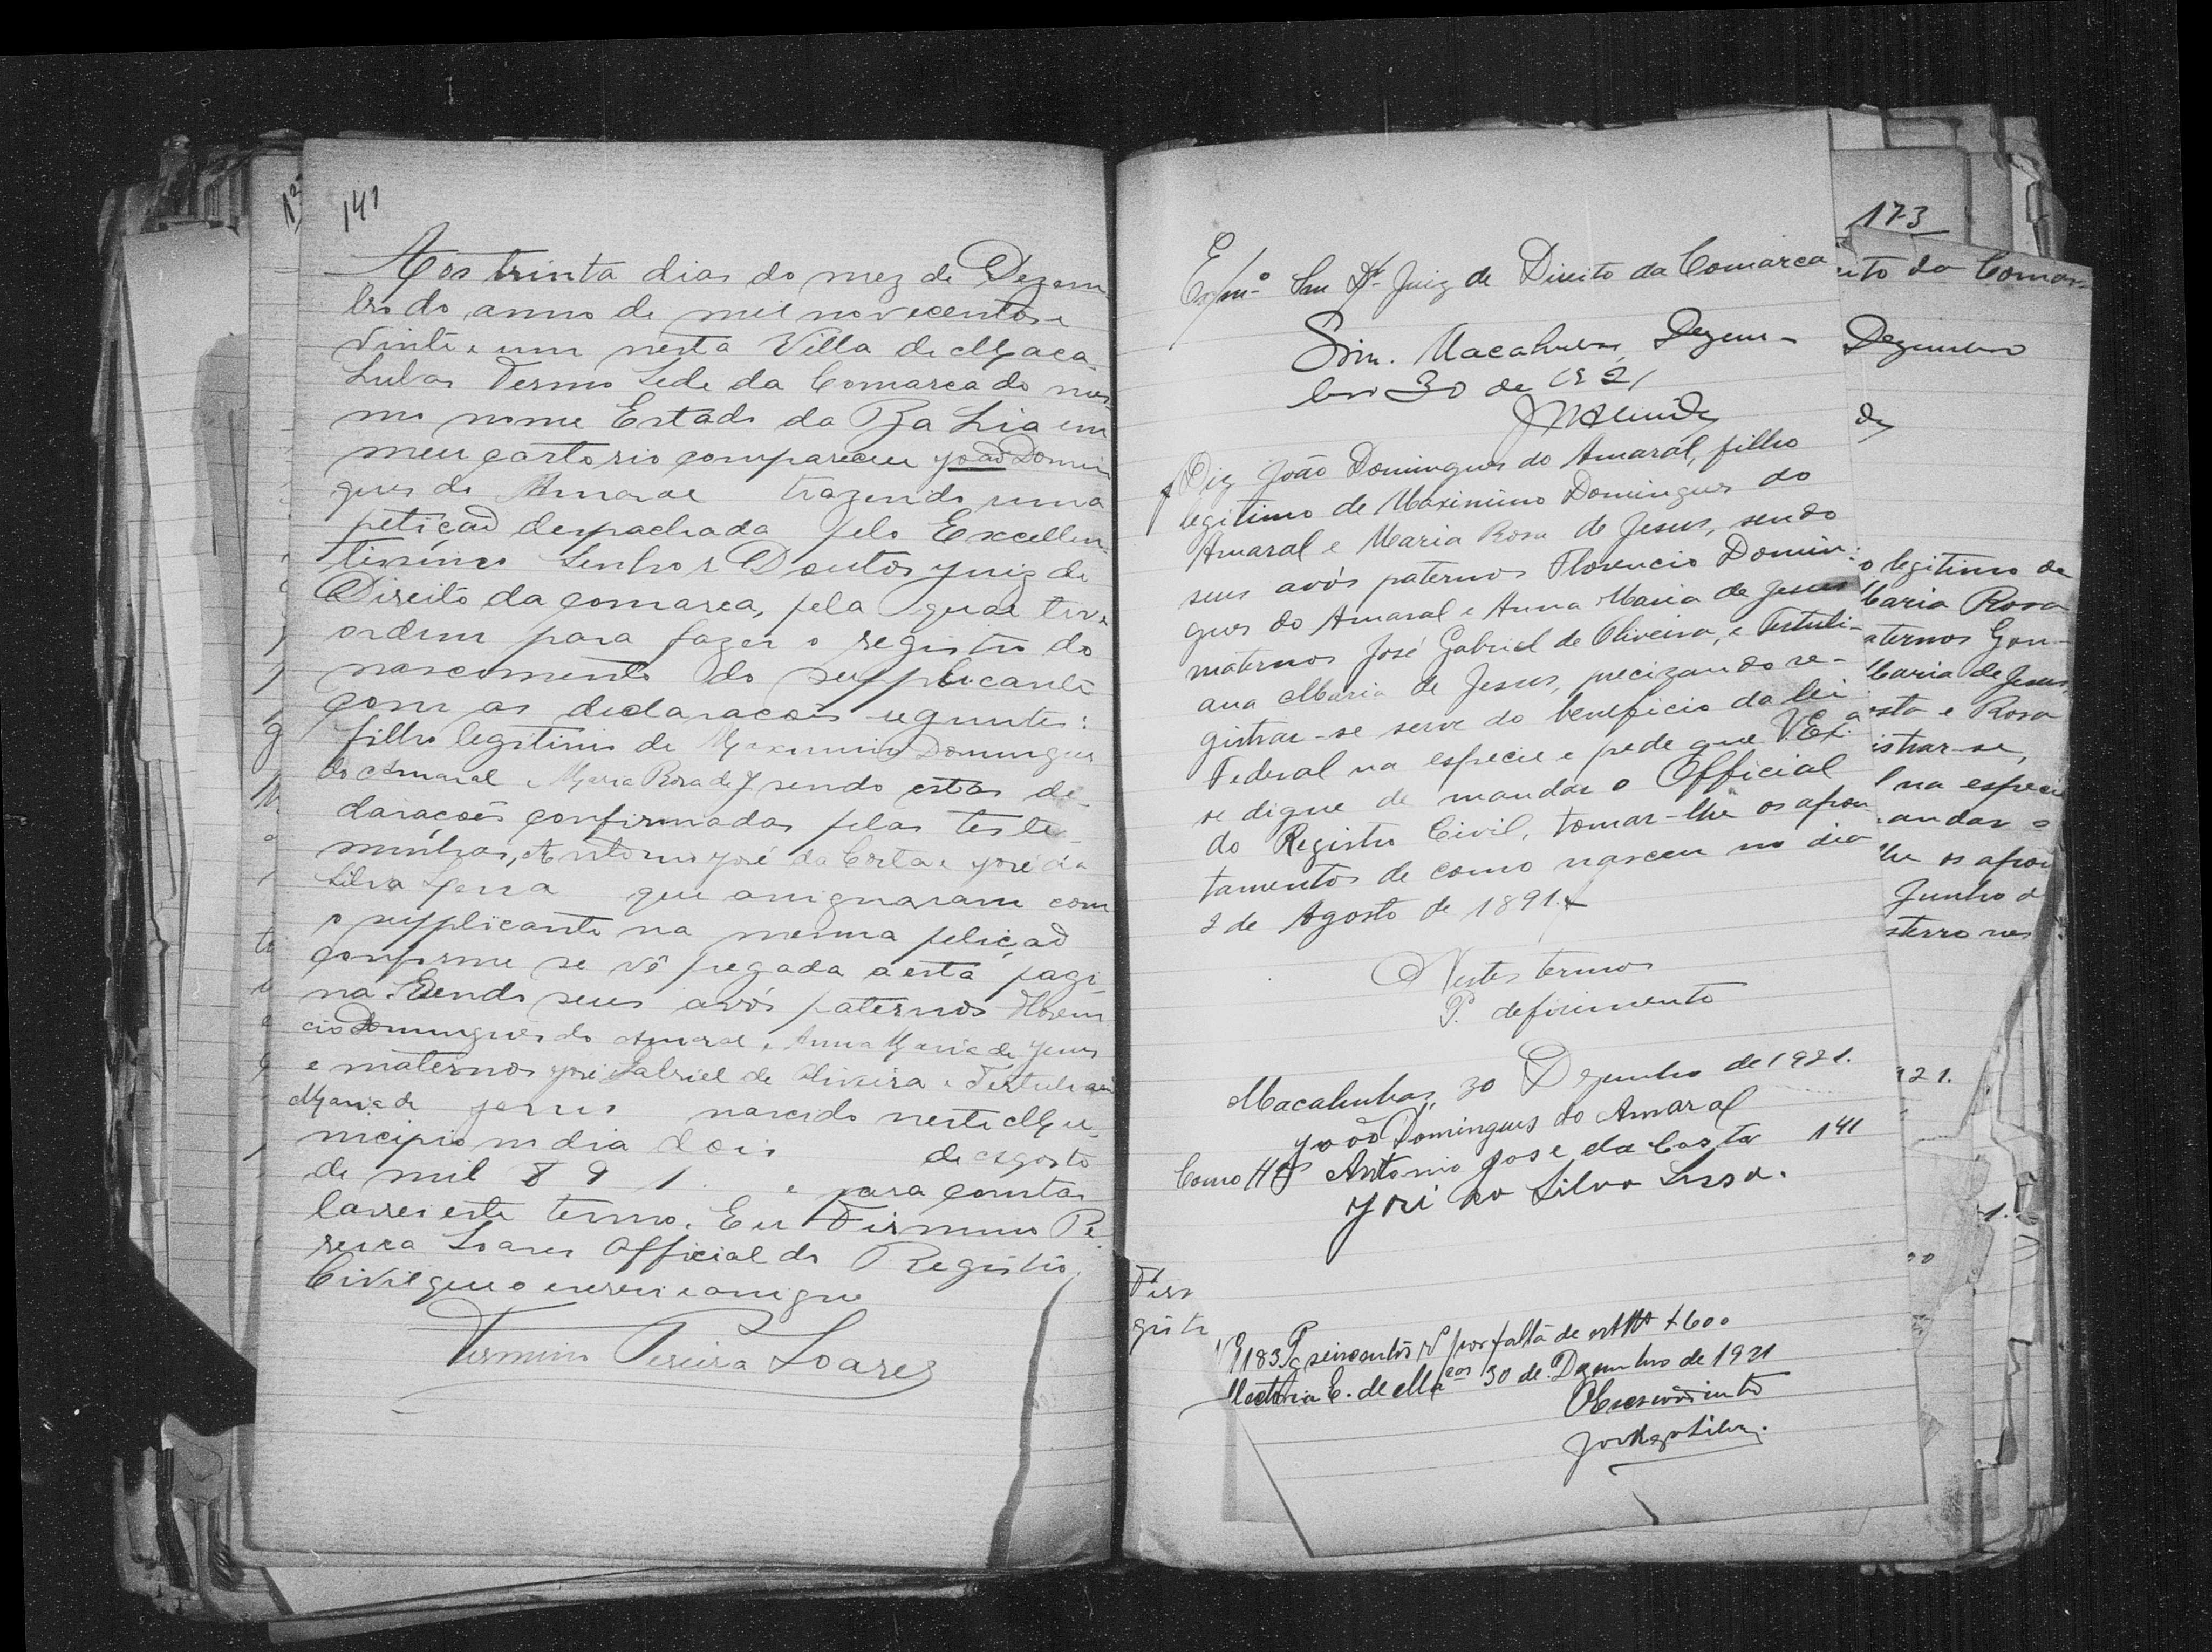 141
Aos trinta dias do mez de Dezem
bro do anno de mil novecentos e
vinte e um nesta Villa de Maca
hubas Termo Sede da Comarca do mes
mo nome Estado da Bahia em
meu cartorio compareceu João Domin
gues do Amaral trazendo uma
petição despachada pelo Excellen
tissimo Senhor Doutor Juiz de
Direito da comarca, pela qual tive
ordem para fazer o registro do
nascimento do supplicante
com as declarações seguntes:
filho legitimo de Maximino Domingues
do Amaral e Maria Rosa de J sendo estas de-
clarações confirmadas pelas teste
munhas, Antonio José da Costa e José da
Silva que assignaram com
o supplicante na mesma petição
conforme se vê pregada a esta pagi
na. Sendo seus avós paternos Floren
cio Domingues do Amaral e Anna Maria de Jesus
e maternos José Gabriel de Oliveira e Tertuliana
Maria de Jesus nascido neste Mu
nicipio no dia dois de Agosto
de mil 891. e para constar
lavrei este termo. Eu Firmino Pe
reira Soares Official do Registro
Civil que o escrevi e assigno
Firmino Pereira Soares
173
Exmo Snr Dr Juiz de Direito da Comarca
Sim. Macahubas, Dezem-
bro 30 de 1921
Diz João Domingues do Amaral, filho
legitimo de Maximino Domingues do
Amaral e Maria Rosa de Jesus, sendo
seus avós paternos Florencio Domin-
gues do Amaral e Anna Maria de Jesus
maternos José Gabriel de Oliveira, e Tertuli-
ana Maria de Jesus, precizando re-
gistrar-se serve do beneficio da lei
Federal na especie e pede que V. Exa
se digne de mandar o Official
do Registro Civil, tomar-lhe os apon
tamentos de como nasceu no dia
2 de Agosto de 1891.
Nestes termos
P. deferimento
Macahubas, 30 Dezembro de 1921.
João Domingues do Amaral
141
Como Antonio Jose da Costa
José da Silva
Nº 183 Pg seiscentos rs por falta de
30 de Dezembro de 1921
O Escrevente
ito da Comar
Dezembro
de
o legitimo de
Maria Rosa
aternos Gon-
Maria de Jesus,
osta e Rosa
istrar-se,
l na especie
andar o
lhe os apon
Junho d
121.